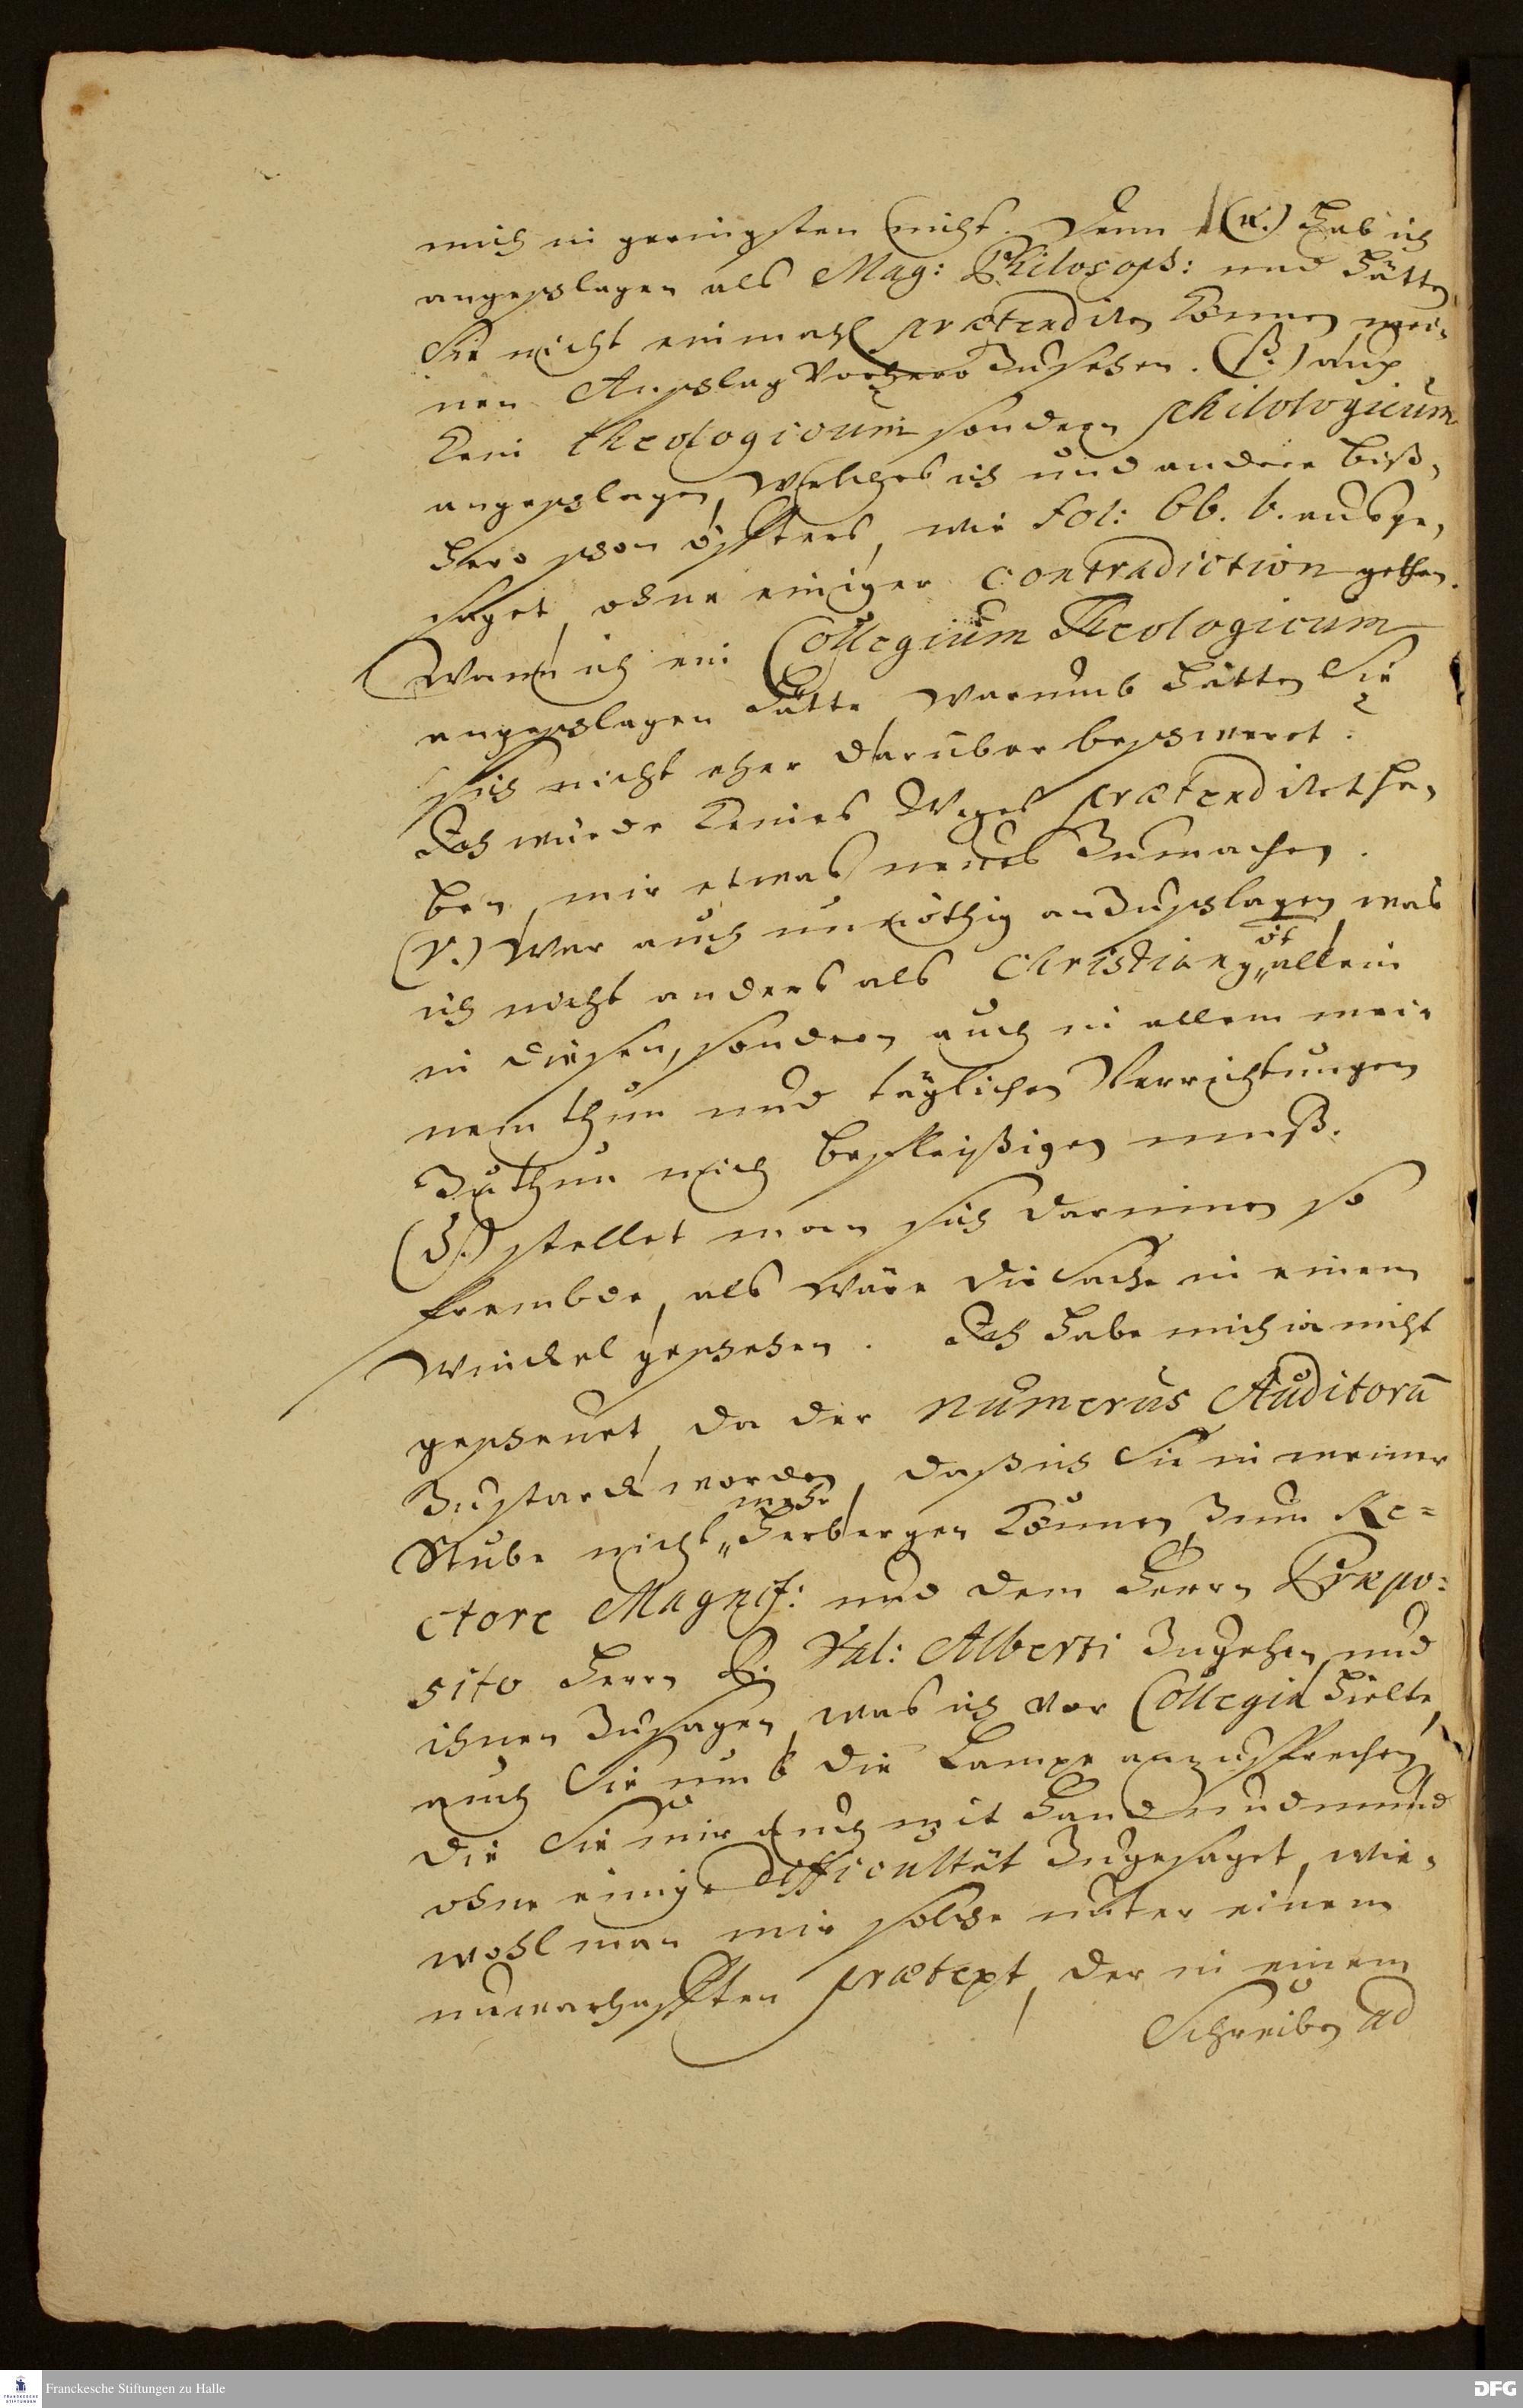 mich in geringsten nicht. Denn (α.) Hab ich
angeschlagen als Mag: Philosoph: und hätten
Sie nicht einmahl prætendiren können mei-
nen Anschlag vorhero zusehen. (β.) auch
kein theologicum sondern philologicum
angeschlagen, welches ich und andere biß-
hero schon öffters, wie fol: 66. b. ausge-
saget, ohne einiger contradiction gethan.
Wann ich ein Collegium Theologicum
angeschlagen hätte, warumb hätten Sie
sich nicht eher darüber beschweret?
Ich würde keines Weges prætendiret ha-
ben, mir etwas neues zumachen.
(γ.) War auch unnöthig anzuschlagen, was
ich nicht anders als Christian9 „allein
in diesen, sondern auch in allem mei-
nem thun und täglichen Verrichtungen
zuthun mich befleißigen muß.
(δ.) stellet man sich darinnen so
frembde, als wäre die Sache in einem
Winckel geschehen. Ich habe mich ja nicht
gescheuet, da der numerus Auditorū
zustarck worden, daß ich Sie in meiner
Stube nicht „mehr herbergen können, zum Re=
ctore Magnif: und dem Herrn Præpo=
sito Herrn D. Val: Alberti zugehen, und
ihnen zusagen, was ich vor Collegia hielte,
auch Sie umb die Lampe anzusprechen,
die Sie mir auch mit Hand und mund
ohne einige difficultät zugesaget, wie-
wohl man mir solche unter einem
unwarhafften prætext, der in einem
Schreiben ad
Franckesche Stiftungen zu Halle
DFG